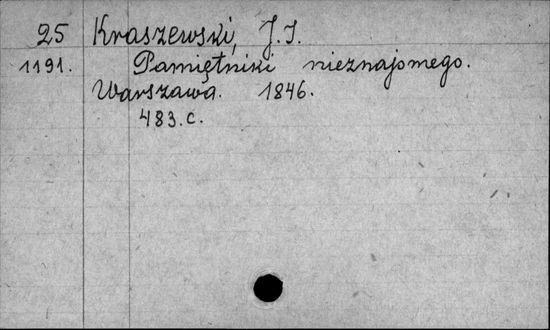 25 Kraszewski, J.I.
1191. Pamiętniki nieznajomego.
Warszawa. 1846.
483.c.